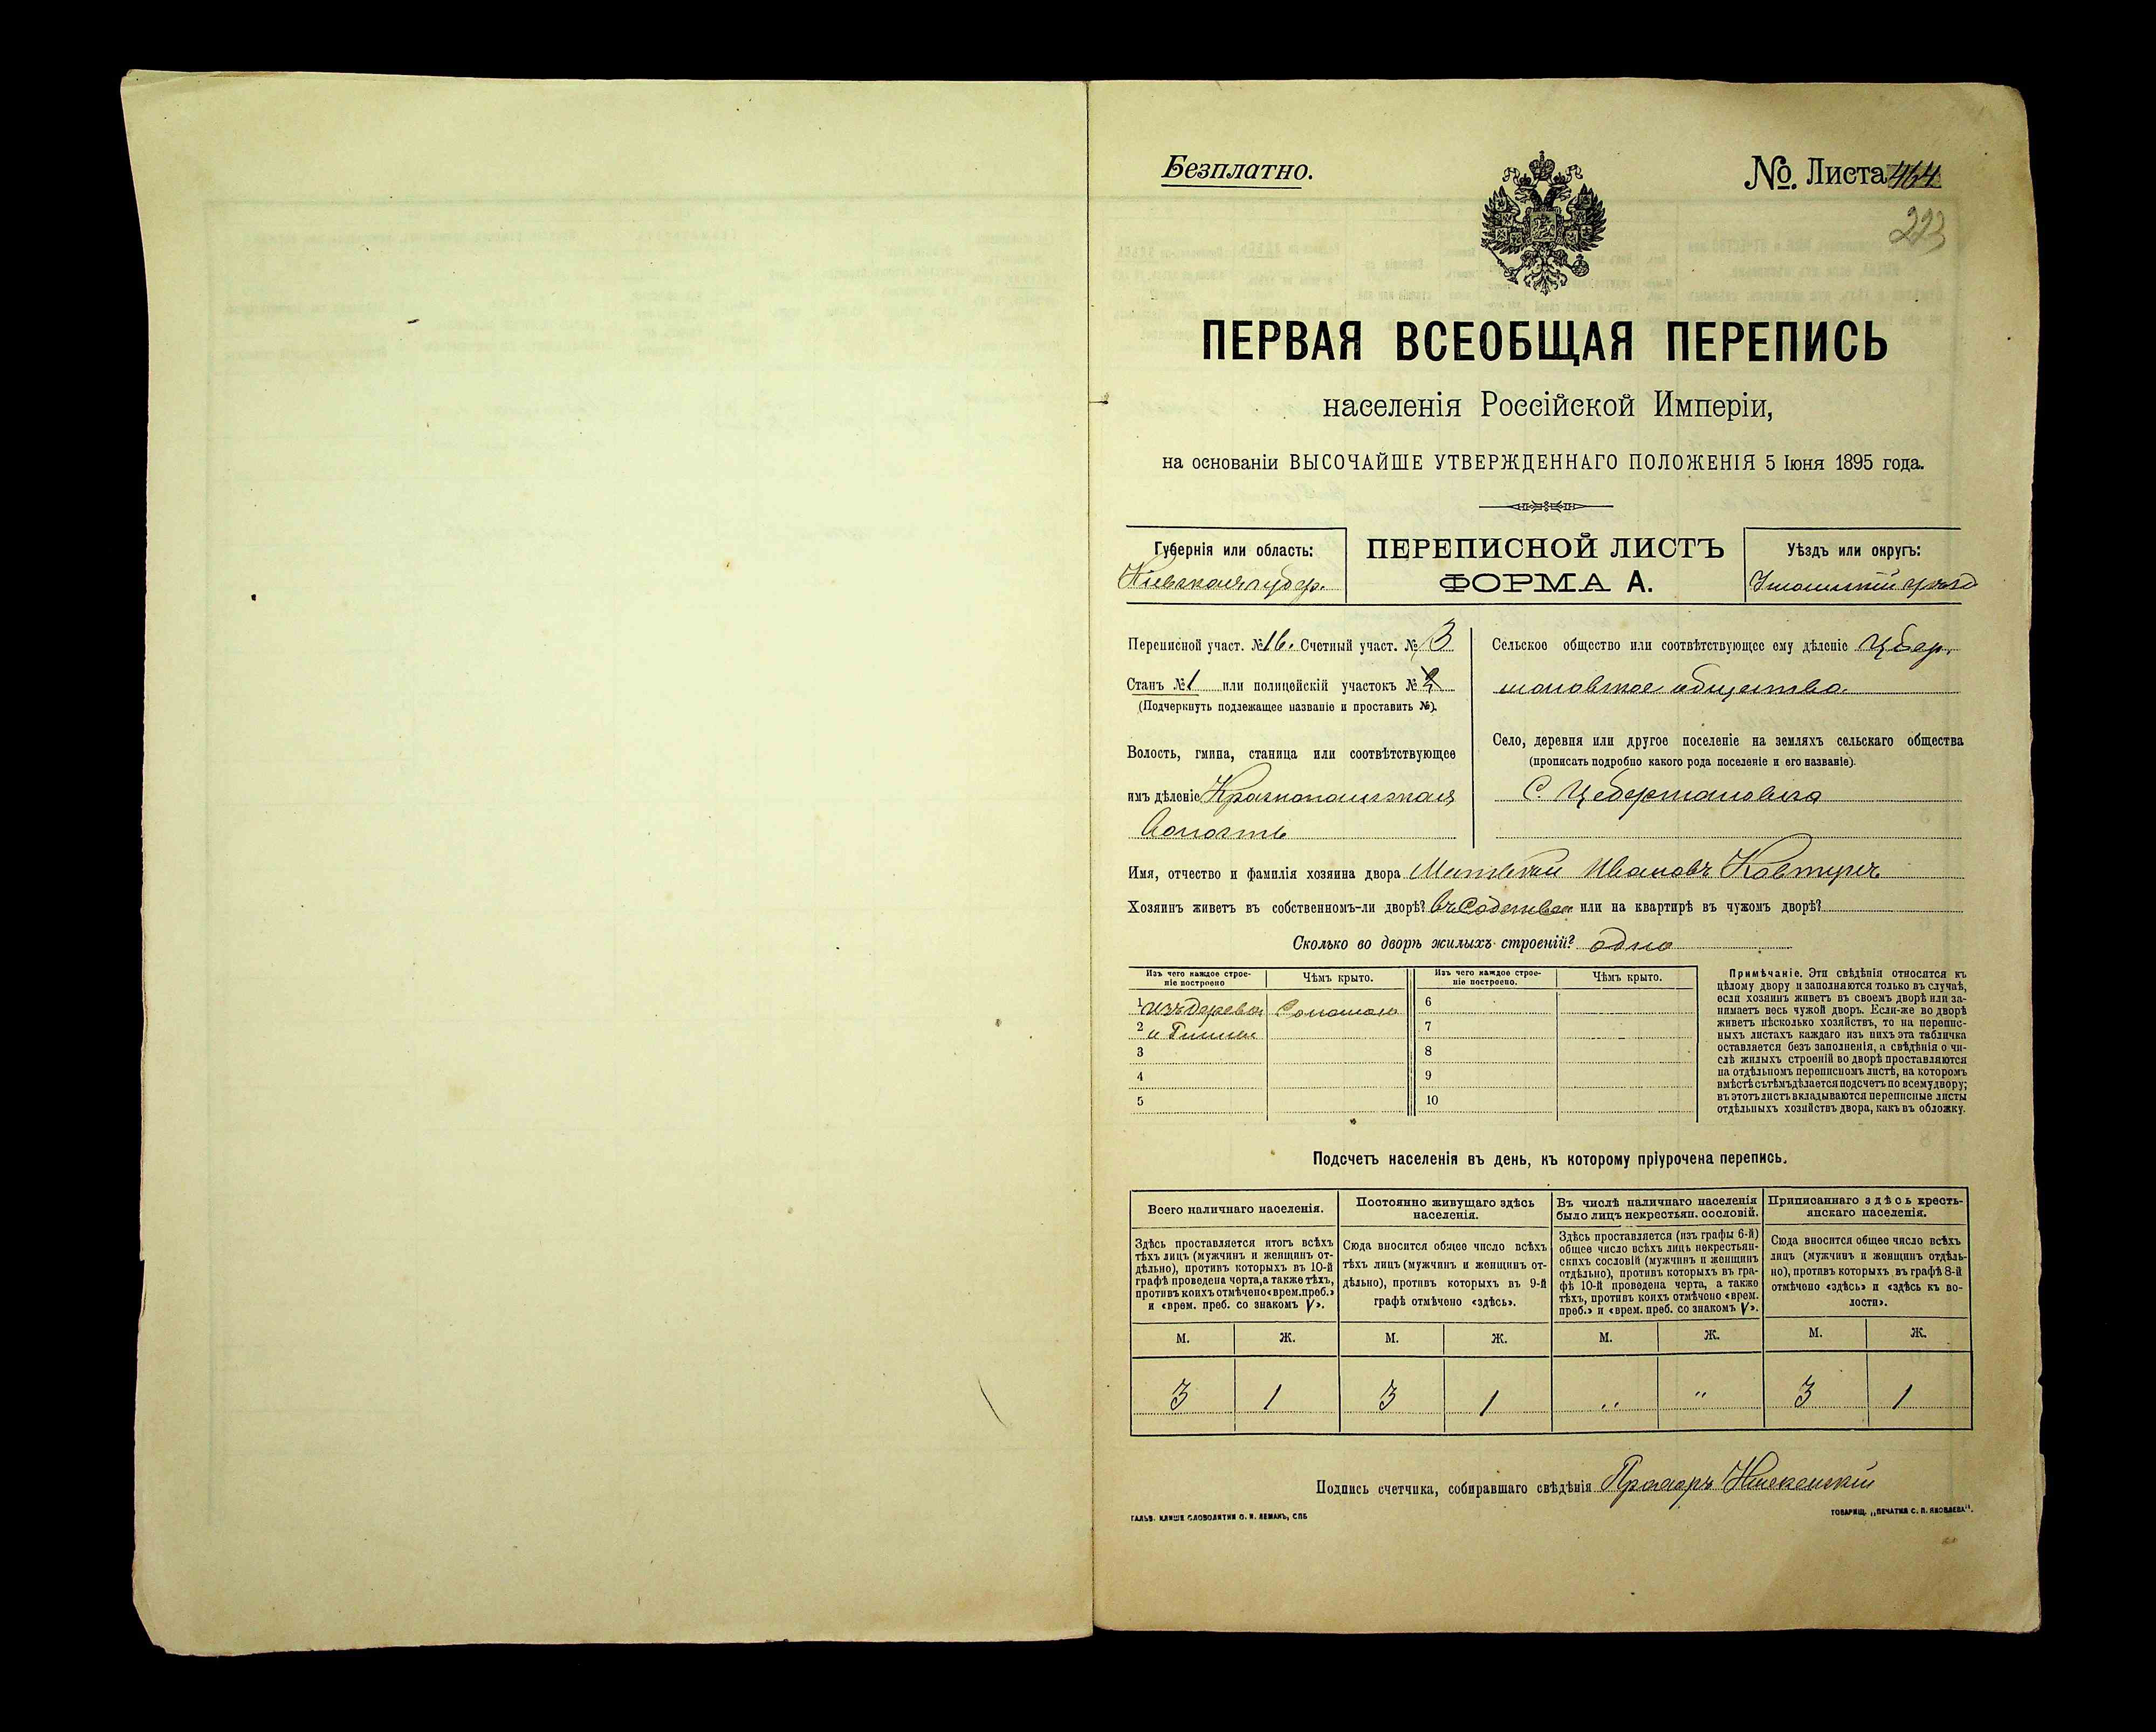 Безплатно.
№. Листа 464
223
ПЕРВАЯ ВСЕОБЩАЯ ПЕРЕПИСЬ
населенія Россійской Имперіи,
на основаніи ВЫСОЧАЙШЕ УТВЕРЖДЕННАГО ПОЛОЖЕНІЯ 5 Іюня 1895 года.
Губернія или область:
Кіевская губер.
ПЕРЕПИСНОЙ ЛИСТЪ
ФОРМА А.
Уѣздъ или округъ:
Уманскій уѣзд
Переписной участ. № 16. Счетный участ. № 3
Станъ № 1 или полицейскій участокъ №
(Подчеркнуть подлежащее названіе и проставить №).
Волость, гмина, станица или соотвѣтствующее
имъ дѣленіе Краснопольская
Волость
Сельское общество или соотвѣтствующее ему дѣленіе Цебер.
мановское общество
Село, деревня или другое поселеніе на земляхъ сельскаго общества
(прописать подробно какого рода поселеніе и его названіе).
С. Цебермановка
Имя, отчество и фамилія хозяина двора Матвѣй Ивановъ Ковтунъ
Хозяинъ живетъ въ собственномъ-ли дворѣ? въ Собствен или на квартирѣ въ чужомъ дворѣ?
Сколько во дворѣ жилыхъ строеній? одно
Изъ чего каждое строе-
ніе построено
Чѣмъ крыто.
Изъ чего каждое строе-
ніе построено.
Чѣмъ крыто.
1 Изъ дерева Соломою
2 и Глины
3
4
5
6
7
8
9
10
Примѣчаніе. Эти свѣдѣнія относятся къ
цѣлому двору и заполняются только въ случаѣ,
если хозяинъ живетъ въ своемъ дворѣ или за-
нимаетъ весь чужой дворъ. Если-же во дворѣ
живетъ нѣсколько хозяйствъ, то на перепис-
ныхъ листахъ каждаго изъ нихъ эта табличка
оставляется безъ заполненія, а свѣдѣнія о чи-
слѣ жилыхъ строеній во дворѣ проставляются
на отдѣльномъ переписномъ листѣ, на которомъ
вмѣстѣ съ тѣмъ дѣлается подсчетъ по всему двору;
въ этотъ листъ вкладываются переписные листы
отдѣльныхъ хозяйствъ двора, какъ въ обложку.
Подсчетъ населенія въ день, къ которому пріурочена перепись.
Всего наличнаго населенія.
Здѣсь проставляется итогъ всѣхъ
тѣхъ лицъ (мужчинъ и женщинъ от-
дѣльно), противъ которыхъ въ 10-й
графѣ проведена черта, а также тѣхъ,
противъ коихъ отмѣчено «врем. преб.»
и «врем. преб. со знакомъ V».
Постоянно живущаго здѣсь
населенія.
Сюда вносится общее число всѣхъ
тѣхъ лицъ (мужчинъ и женщинъ от-
дѣльно), противъ которыхъ въ 9-й
графѣ отмѣчено «здѣсь».
Въ числѣ наличнаго населенія
было лицъ некрестьян. сословій.
Здѣсь проставляется (изъ графы 6-й)
общее число всѣхъ лицъ некрестьян-
скихъ сословій (мужчинъ и женщинъ
отдѣльно), противъ которыхъ въ гра-
фѣ 10-й проведена черта, а также
тѣхъ, противъ коихъ отмѣчено «врем.
преб.» и «врем. преб. со знакомъ V».
Приписаннаго здѣсь кресть-
янскаго населенія.
Сюда вносится общее число всѣхъ
лицъ (мужчинъ и женщинъ отдѣль-
но), противъ которыхъ въ графѣ 8-й
отмѣчено «здѣсь» и «здѣсь къ во-
лости».
М. Ж. М. Ж. М. Ж. М. Ж.
3 1 3 1 " " 3 1
Подпись счетчика, собиравшаго свѣдѣнія
ГАЛЬВ. КЛИШЕ СЛОВОЛИТНИ О. И. ЛЕМАНЪ, СПБ
ТОВАРИЩ. „ПЕЧАТНЯ С. П. ЯКОВЛЕВА".